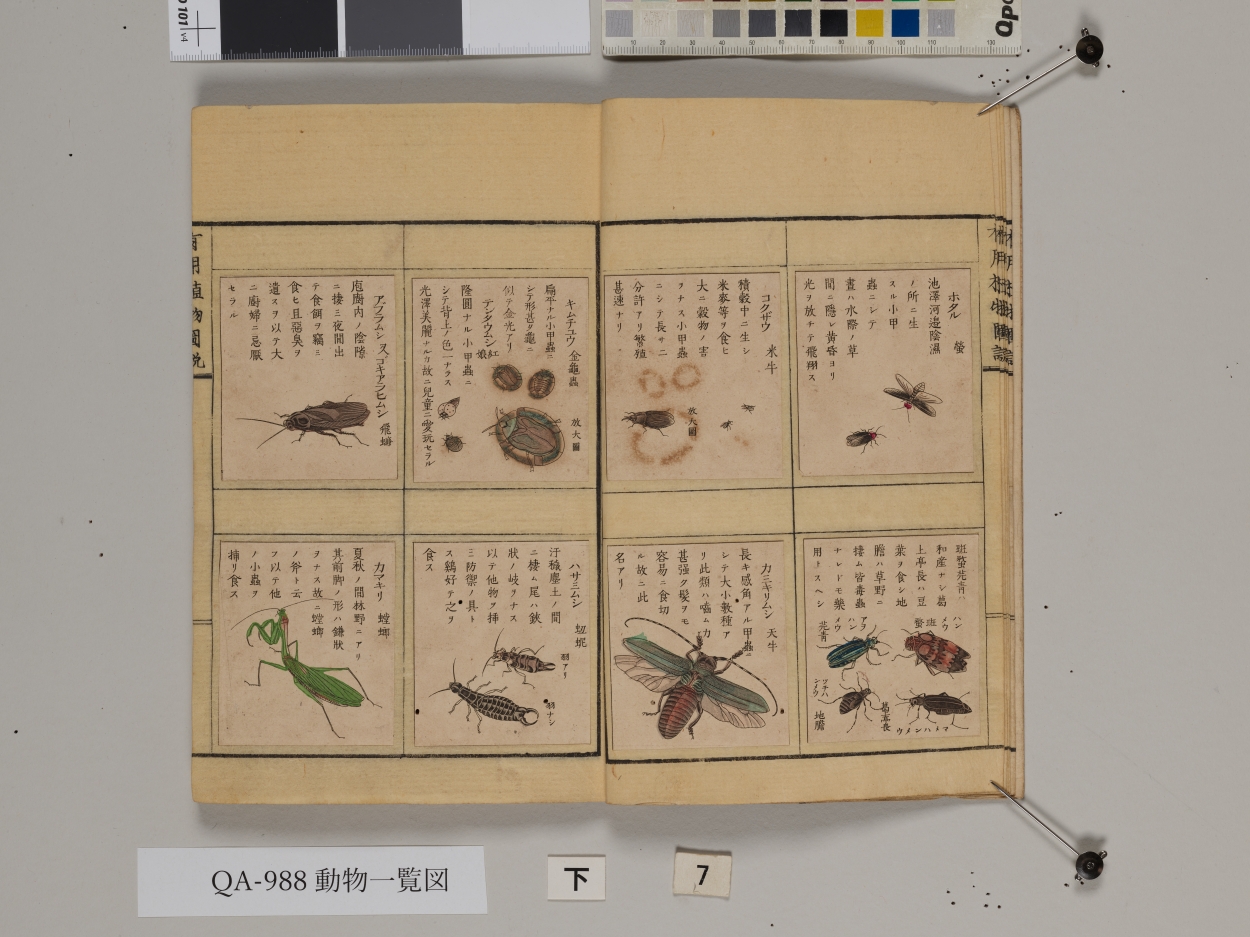 ホタル 螢
池澤河邉陰濕
ノ所ニ生
スル小甲
蟲ニシテ
晝ハ水際ノ草
間ニ隱レ黄昏ヨリ
光ヲ放チテ飛翔ス
コクザウ 米牛
積穀中ニ生シ
米麥等ヲ食ヒ
大ニ穀物ノ害
ヲナス小甲蟲
ニシテ長サ二
分許アリ繁殖
甚速ナリ
放大圖
キムチユウ 金龜蟲
扁平ナル小甲蟲ニ
シテ形甚タ龜ニ
似テ金光アリ
テンタウムシ 紅娘
隆圓ナル小甲蟲ニ
シテ背上ノ色一ナラス
光澤美麗ナルカ故ニ兒童ニ愛玩セラル
放大圖
アブラムシ 又ゴキアラヒムシ 飛蠊
庖廚内ノ陰隋
ニ棲ミ夜間出
テ食餌ヲ竊ミ
食ヒ且惡臭ヲ
遺スヲ以テ大
ニ廚婦ニ忌厭
セラル
斑蝥芫青ハ
和産ナシ葛
上亭長ハ豆
葉ヲ食シ地
膽ハ草野ニ
棲ム皆毒蟲
ナレドモ藥
用トスヘシ
ハンメウ 斑蝥
アヲハンメウ 芫青
マメハンメウ 葛亭長
ツチハンメウ 地膽
カミキリムシ 天牛
長キ感角アル甲蟲ニ
シテ大小數種ア
リ此類ハ嚙ム力
甚强ク髮ヲモ
容易ニ食切
ル故ニ此
名アリ
ハサミムシ
汙穢塵土ノ間
ニ棲ム尾ハ鋏
狀ノ岐ヲナス
以テ他物ヲ挿
ミ防禦ノ具ト
ス鷄好テ之ヲ
食ス
羽アリ
羽ナシ
カマキリ 螳螂
夏秋ノ間林野ニアリ
其前脚ノ形ハ鎌狀
ヲナス故ニ螳螂
ノ斧ト云
フ以テ他
ノ小蟲ヲ
挿リ食ス
QA-988 動物一覧図
下
7